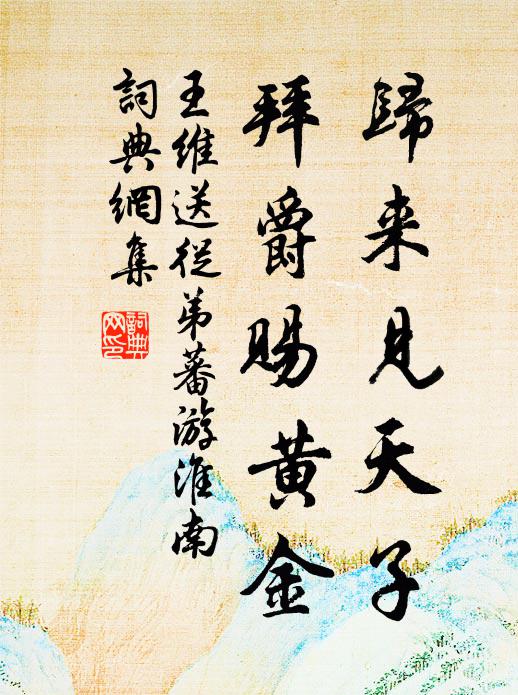 歸来見天子
拜爵賜黃金
王維送從弟蕃游淮南
詞典網集
詞典
网印